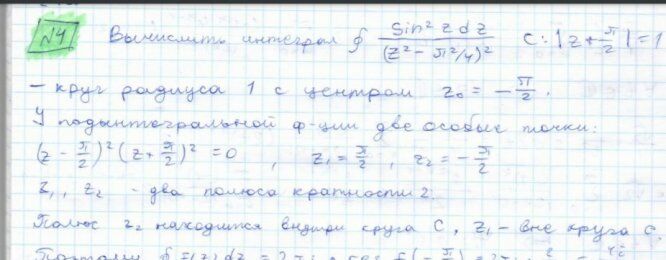 №4 Вычислить интеграл ∮ sin² z dz / (z² - π²/4)² C: |z + π/2| = 1
- круг радиуса 1 с центром z₀ = -π/2.
У подынтегральной ф-ции две особые точки:
(z - π/2)² (z + π/2)² = 0 , z₁ = π/2 , z₂ = -π/2
z₁, z₂ - два полюса кратности 2.
Полюс z₂ находится внутри круга C, z₁ - вне круга C.
Поэтому